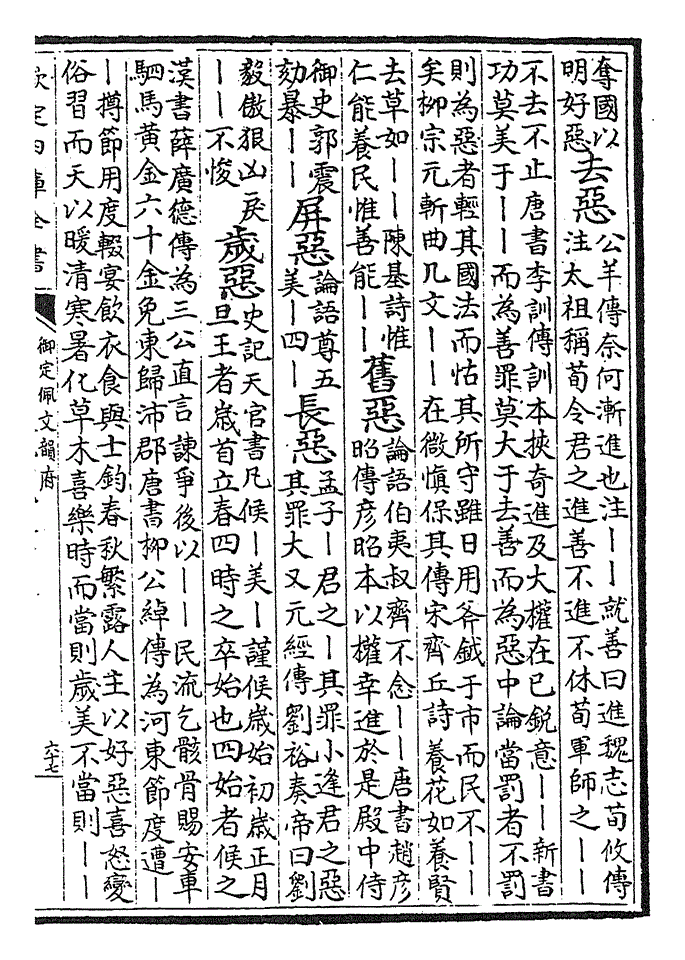 奪國以
明好惡
去惡
公羊傳奈何漸進也注——就善曰進魏志荀攸傳
注太祖稱荀令君之進善不進不休荀軍師之——
不去不止唐書李訓傳訓本挾奇進及大權在已銳意——新書
功莫美于——而為善罪莫大于去善而為惡中論當罰者不罰
則為惡者輕其國法而怙其所守雖日用斧鉞于市而民不——
矣柳宗元斬曲几文——在微慎保其傳宋齊丘詩養花如養賢
去草如——陳基詩惟
仁能養民惟善能——
舊惡
論語伯夷叔齊不念——唐書趙彥
昭傳彥昭本以權幸進於是殿中侍
御史郭震
劾暴——
屏惡
論語尊五
美—四—
長惡
孟子—君之—其罪小逢君之惡
其罪大又元經傳劉裕奏帝曰劉
毅傲狠凶戾
——不悛
歲惡
史記天官書凡候—美—謹候歲始初歲正月
旦王者歲首立春四時之卒始也四始者候之
漢書薛廣德傳為三公直言諫爭後以——民流乞骸骨賜安車
駟馬黃金六十金免東歸沛郡唐書柳公綽傳為河東節度遭—
—撙節用度輟宴飲衣食與士鈞春秋繁露人主以好惡喜怒變
俗習而天以暖清寒暑化草木喜樂時而當則歲美不當則——
欽定四庫全書
御定佩文韻府
六十七